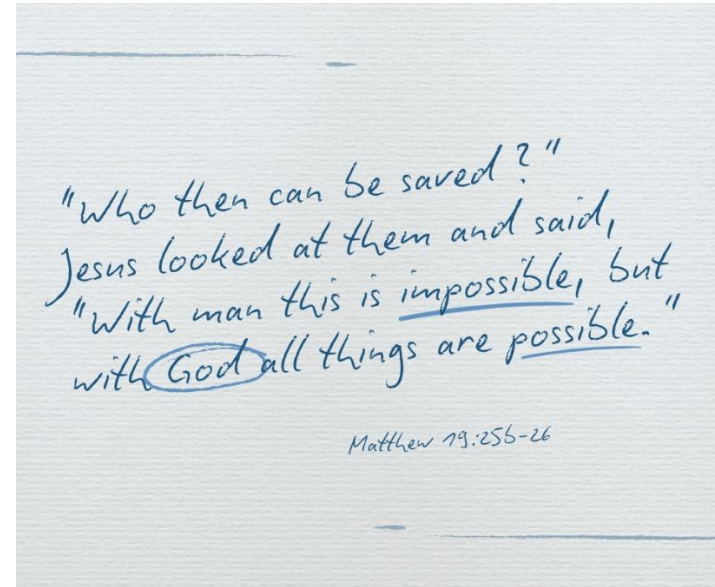 "Who then can be saved?"
Jesus looked at them and said,
"With man this is impossible, but
with God all things are possible."
Matthew 19:25b-26